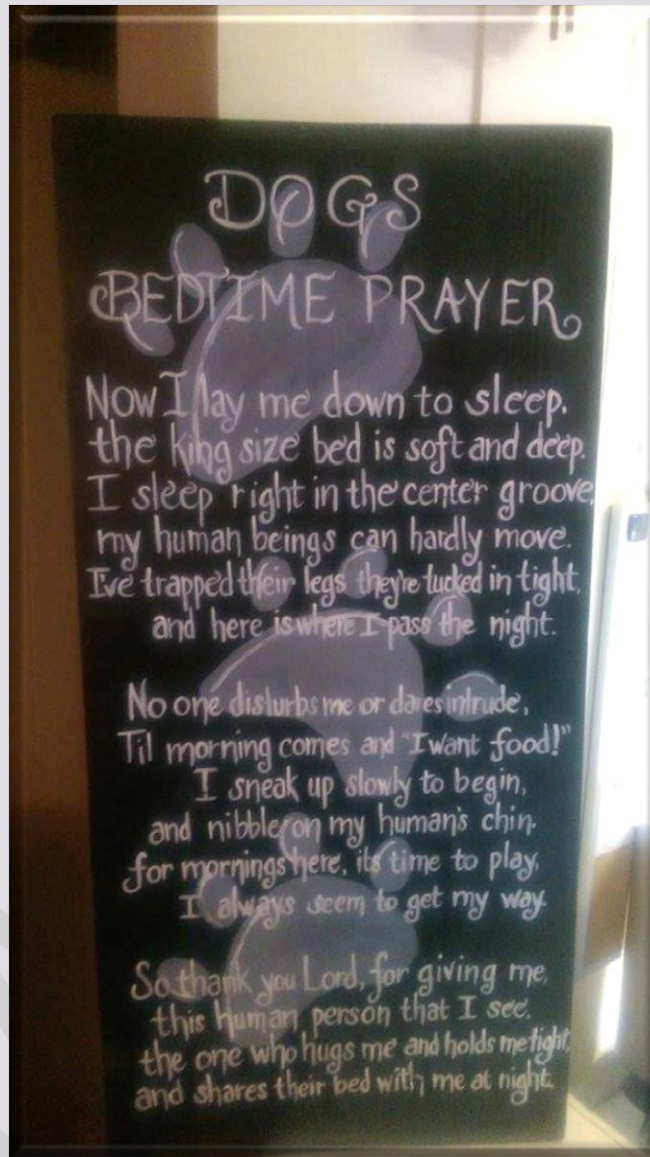 DOGS
BEDTIME PRAYER
Now I lay me down to sleep.
the king size bed is soft and deep.
I sleep right in the center groove,
my human beings can hardly move.
I've trapped their legs they're tucked in tight,
and here is where I pass the night.
No one disturbs me or dares intrude,
Til morning comes and "I want food!"
I sneak up slowly to begin,
and nibble on my human's chin.
for mornings here, its time to play,
I always seem to get my way.
So thank you Lord, for giving me,
this human person that I see.
the one who hugs me and holds me tight,
and shares their bed with me at night.